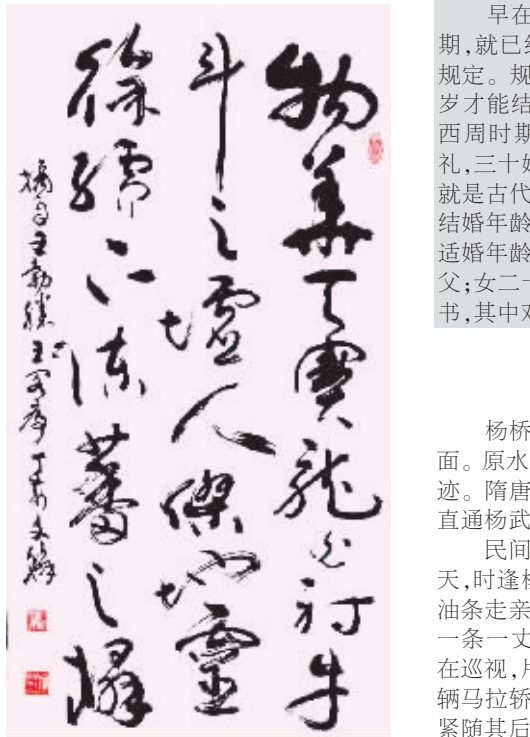 物華天寶龍光射牛
斗之墟人傑地靈
徐孺下陳蕃之榻
摘自王勃滕王阁序
早在
期,就已经
规定。规
岁才能结
西周时期
礼,三十始
就是古代
结婚年龄
适婚年龄
父;女二十
书,其中对
杨桥
面。原水
迹。隋唐
直通杨武
民间
天,时逢
油条走亲
一条一丈
在巡视,
辆马拉轿
紧随其后